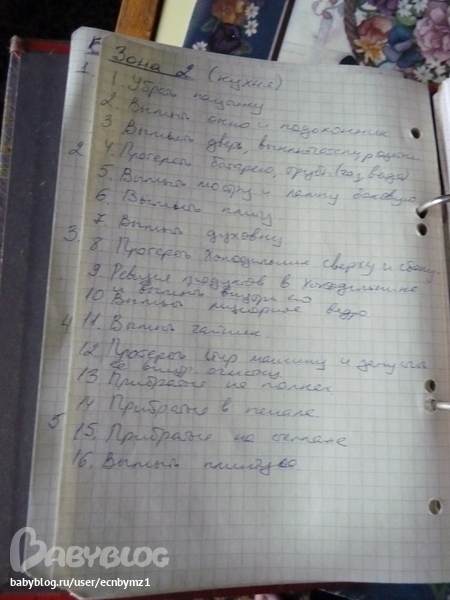 Зона 2 (кухня)
1. 1 Убрать паутину
2 Вымыть окно и подоконник
3 Вымыть дверь, выключатель, розетки
2. 4. Протереть батарею, трубы (газ, вода)
5. Вымыть люстру и лампу боковую
6. Вымыть плиту
7. Вымыть духовку
3. 8. Протереть холодильник сверху и сбоку
9. Ревизия продуктов в холодильнике
и вымыть внутри его
10 Вымыть мусорное ведро
4 11. Вымыть чайник.
12. Протереть стир машину и запустить
её внутр. очистку
13. Прибраться на полках
14. Прибраться в пенале
5 15. Прибраться на
16. Вымыть плинтуса
BABYBLOG
babyblog.ru/user/ecnbymz1